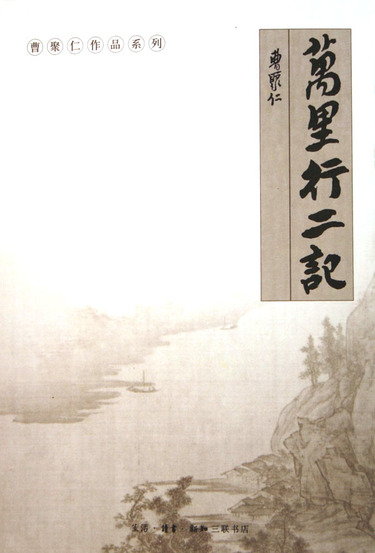 曹聚仁作品系列
萬里行二記
曹聚仁
生活·讀書·新知三联书店